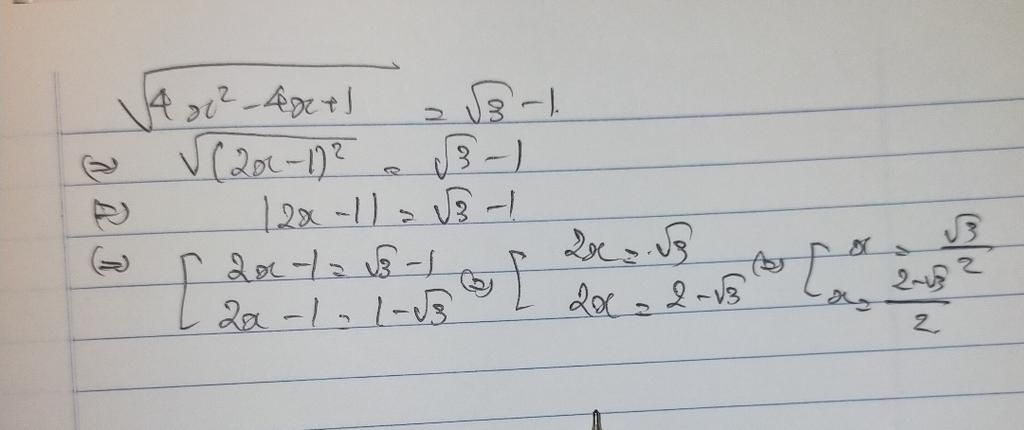 √(4x² - 4x + 1) = √3 - 1
⇔ √((2x - 1)²) = √3 - 1
⇔ |2x - 1| = √3 - 1
⇔ [ 2x - 1 = √3 - 1 ⇔ [ 2x = √3 ⇔ [ x = √3/2
2x - 1 = 1 - √3 2x = 2 - √3 x = (2 - √3)/2